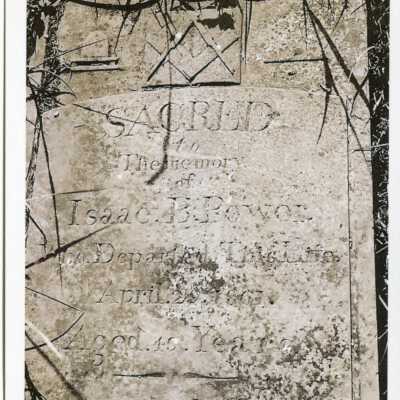 SACRED
to
The memory
of
Isaac. B. Power.
Departed. This Life.
April.
Aged. 48. Years